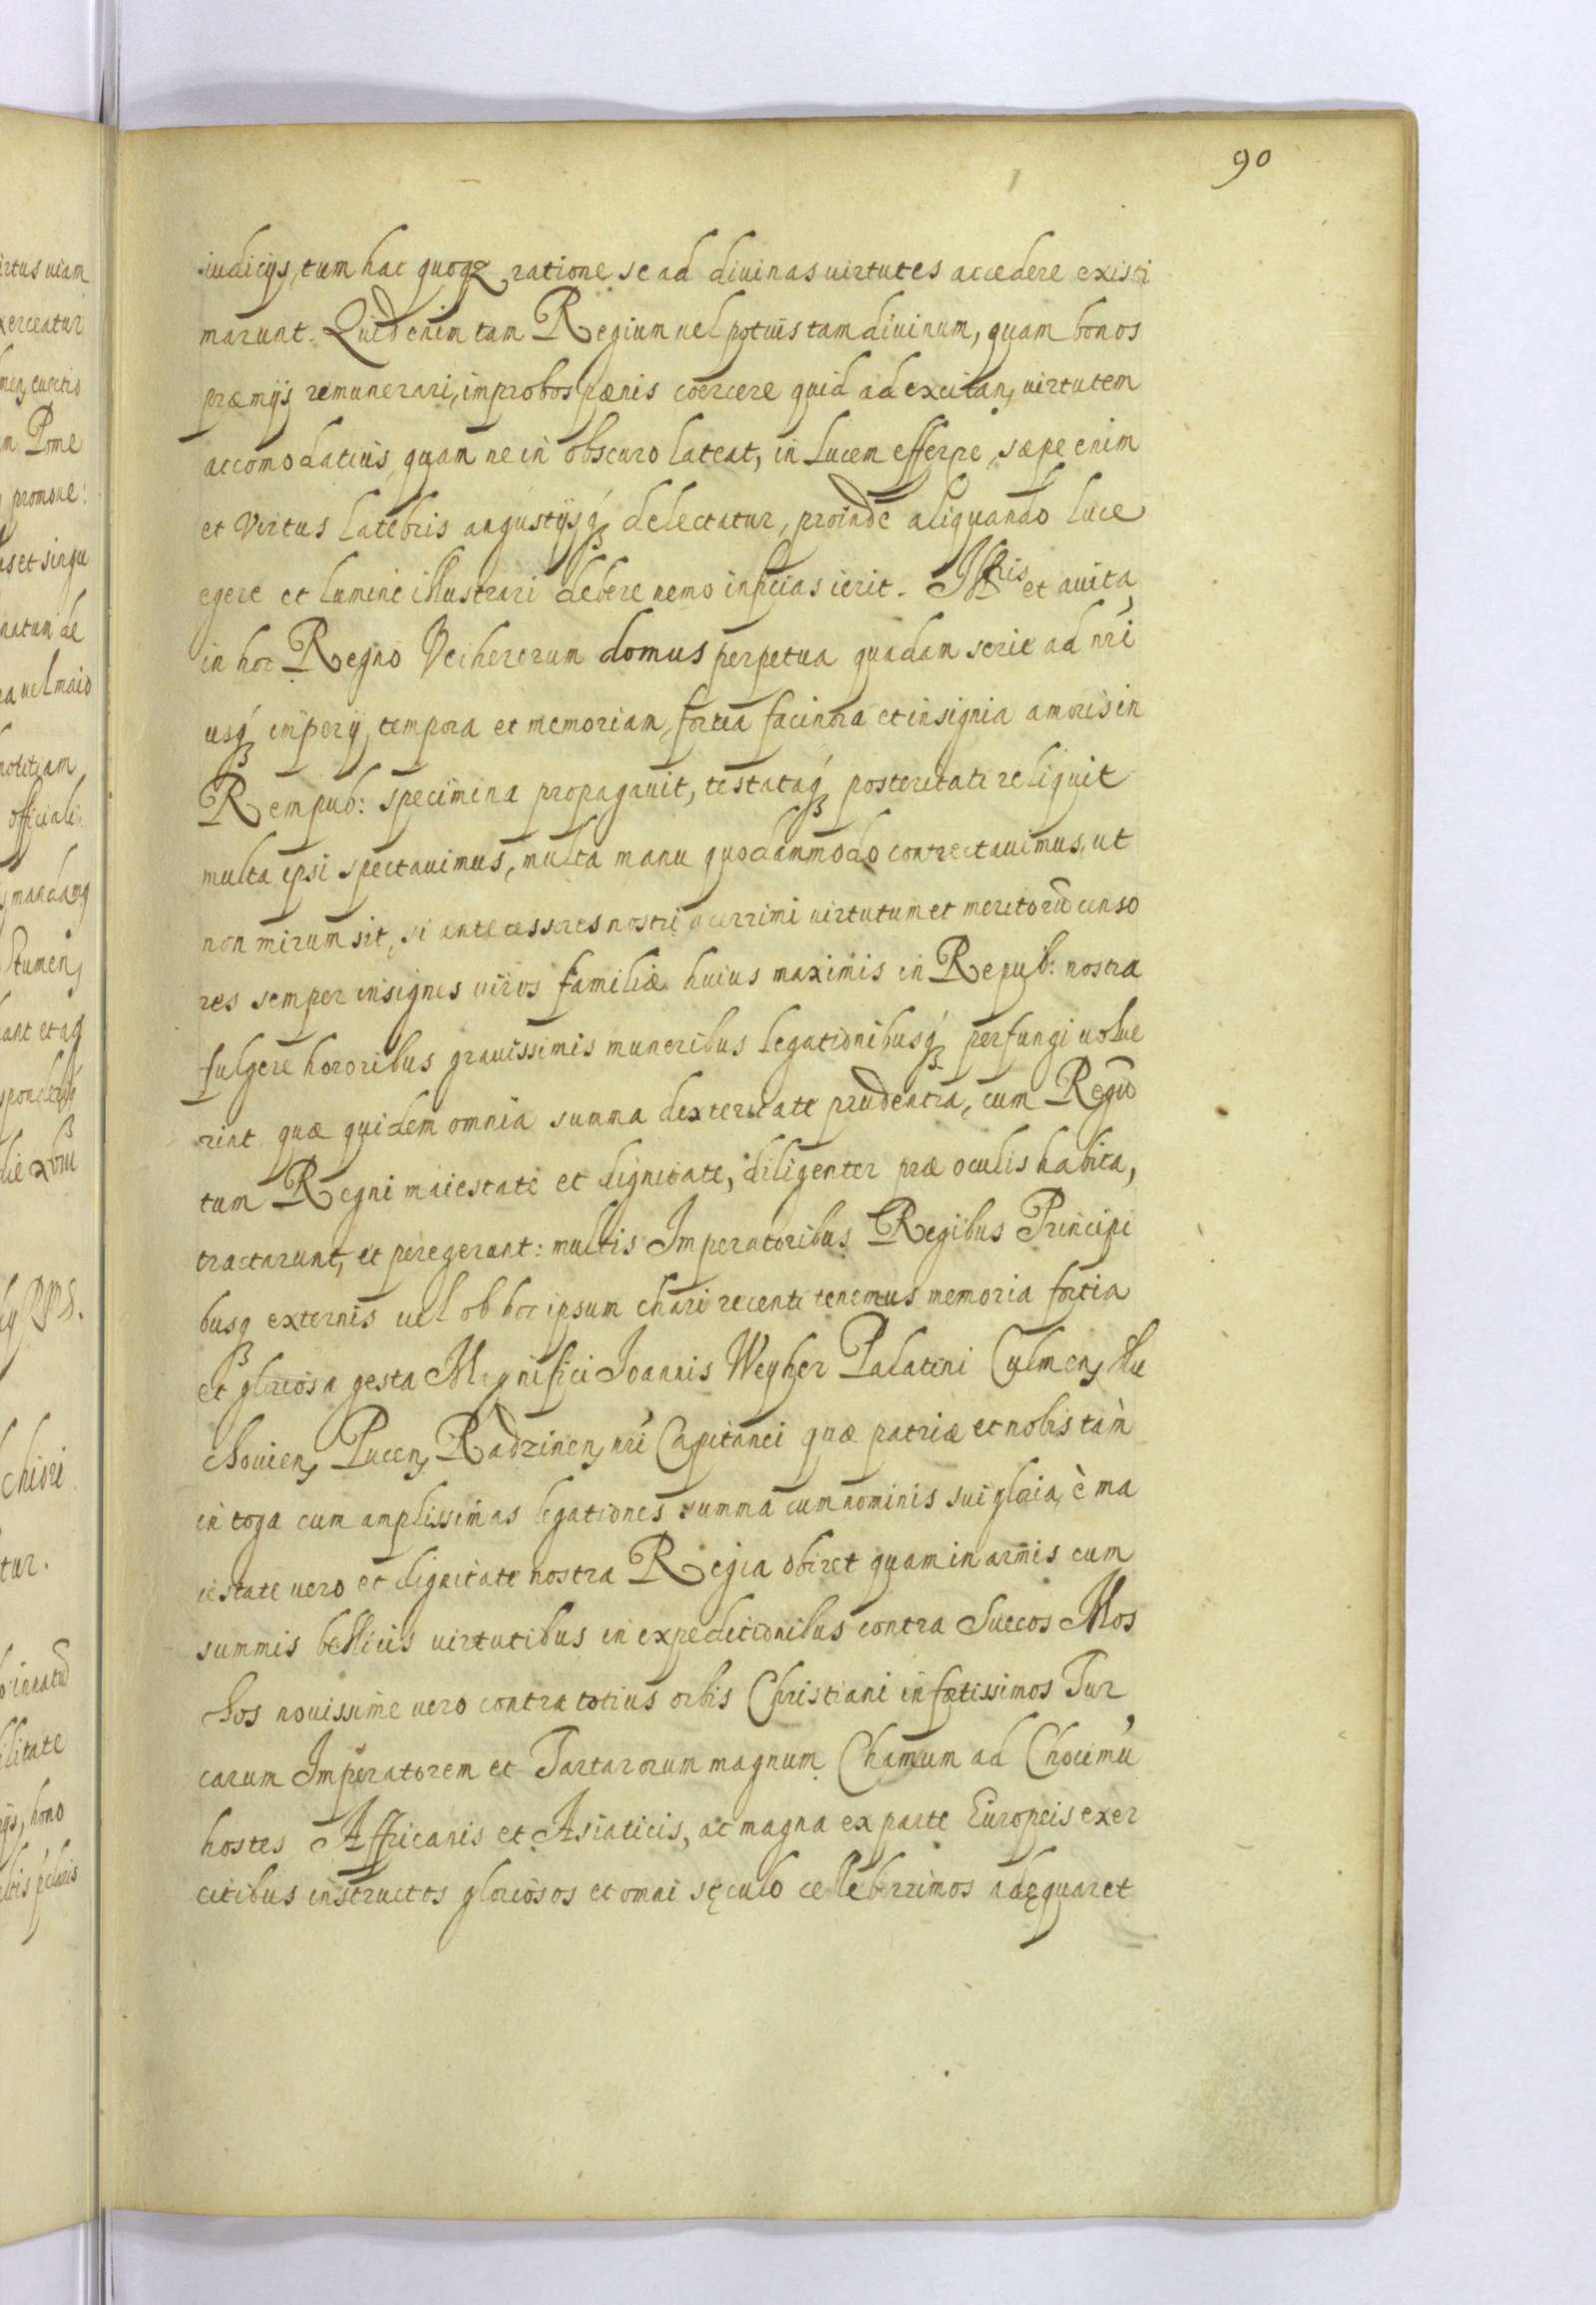 90
iudicijs, tum hac quoqz ratione se ad diuinas uirtutes accedere existi
marunt. Quid enim tam Regium uel potius tam diuinum, quam bonos
præmijs remunerari, improbos pœnis coercere quid ad excitan, uirtutem
accomodatius quam ne in obscuro lateat, in Lucem efferre, sæpe enim
et Virtus latebris angustijsq₃ delectatur, proinde aliquando luce
egere et lumine illustrari debere nemo inficias ierit. Ill͞ris et auita,
in hoc Regno Veiherorum domus perpetua quadam serie ad nr͞i
usq₃ imperij tempora et memoriam, fortia facinora et insignia amoris in
Rempub: specimina propagauit, testataq₃ posteritati reliquit
multa ipsi spectauimus, multa manu quodammodo contrectauimus, ut
non mirum sit, si antecessores nostri acerrimi uirtutum et meritorū censo
res semper insignes uiros familiæ huius maximis in Repub: nostra
fulgere honoribus grauissimis muneribus legationibusq₃ perfungi uolue
rint quæ quidem omnia summa dexteritate prudentia, cum Regū
tum Regni maiestate et dignitate, diligenter præ oculis habita,
tractarunt, et peregerunt: multis Imperatoribus Regibus Principi
busq₃ externis uel ob hoc ipsum chari recenti tenemus memoria fortia
et gloriosa gesta Magnifici Ioannis Weyher Palatini Culmen, Slu
chouien, Pucen, Radzinen, nr͞i Capitanei quæ patriæ et nobis tam
in toga cum amplissimas legationes summa cum nominis sui gloria, è ma
iestate uero et dignitate nostra Regia obiret quam in armis cum
summis bellicis uirtutibus in expeditionibus contra Suecos Mos
chos nouissime uero contra totius orbis Christiani infestissimos Tur
carum Imperatorem et Tartarorum magnum Chamum ad Chocimū
hostes Affricanis et Asiaticis, ac magna ex parte Europeis exer
citibus instructos gloriosos et omni sęculo cellebrrimos adęquaret